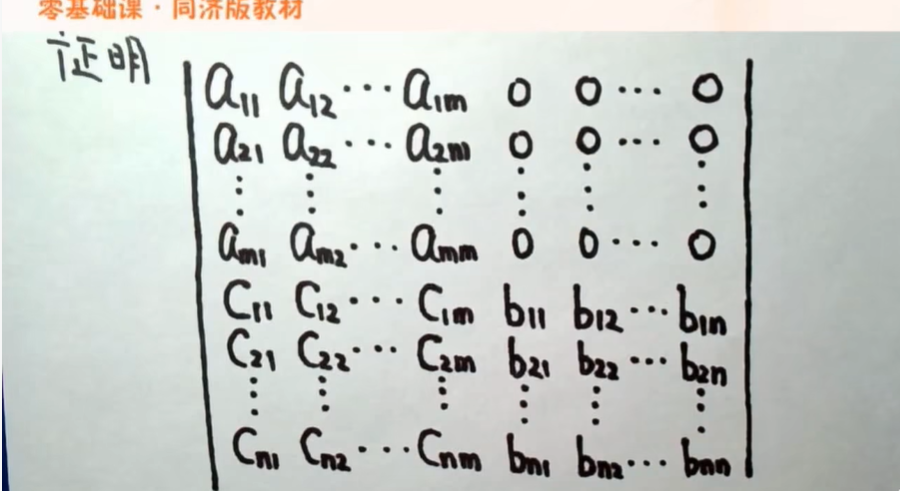 零基础课·同济版教材
证明
a₁₁ a₁₂ ··· a₁ₘ 0 0 ··· 0
a₂₁ a₂₂ ··· a₂ₘ 0 0 ··· 0
⋮ ⋮ ⋮ ⋮ ⋮ ⋮
aₘ₁ aₘ₂ ··· aₘₘ 0 0 ··· 0
C₁₁ C₁₂ ··· C₁ₘ b₁₁ b₁₂ ··· b₁ₙ
C₂₁ C₂₂ ··· C₂ₘ b₂₁ b₂₂ ··· b₂ₙ
⋮ ⋮ ⋮ ⋮ ⋮ ⋮
Cₙ₁ Cₙ₂ ··· Cₙₘ bₙ₁ bₙ₂ ··· bₙₙ